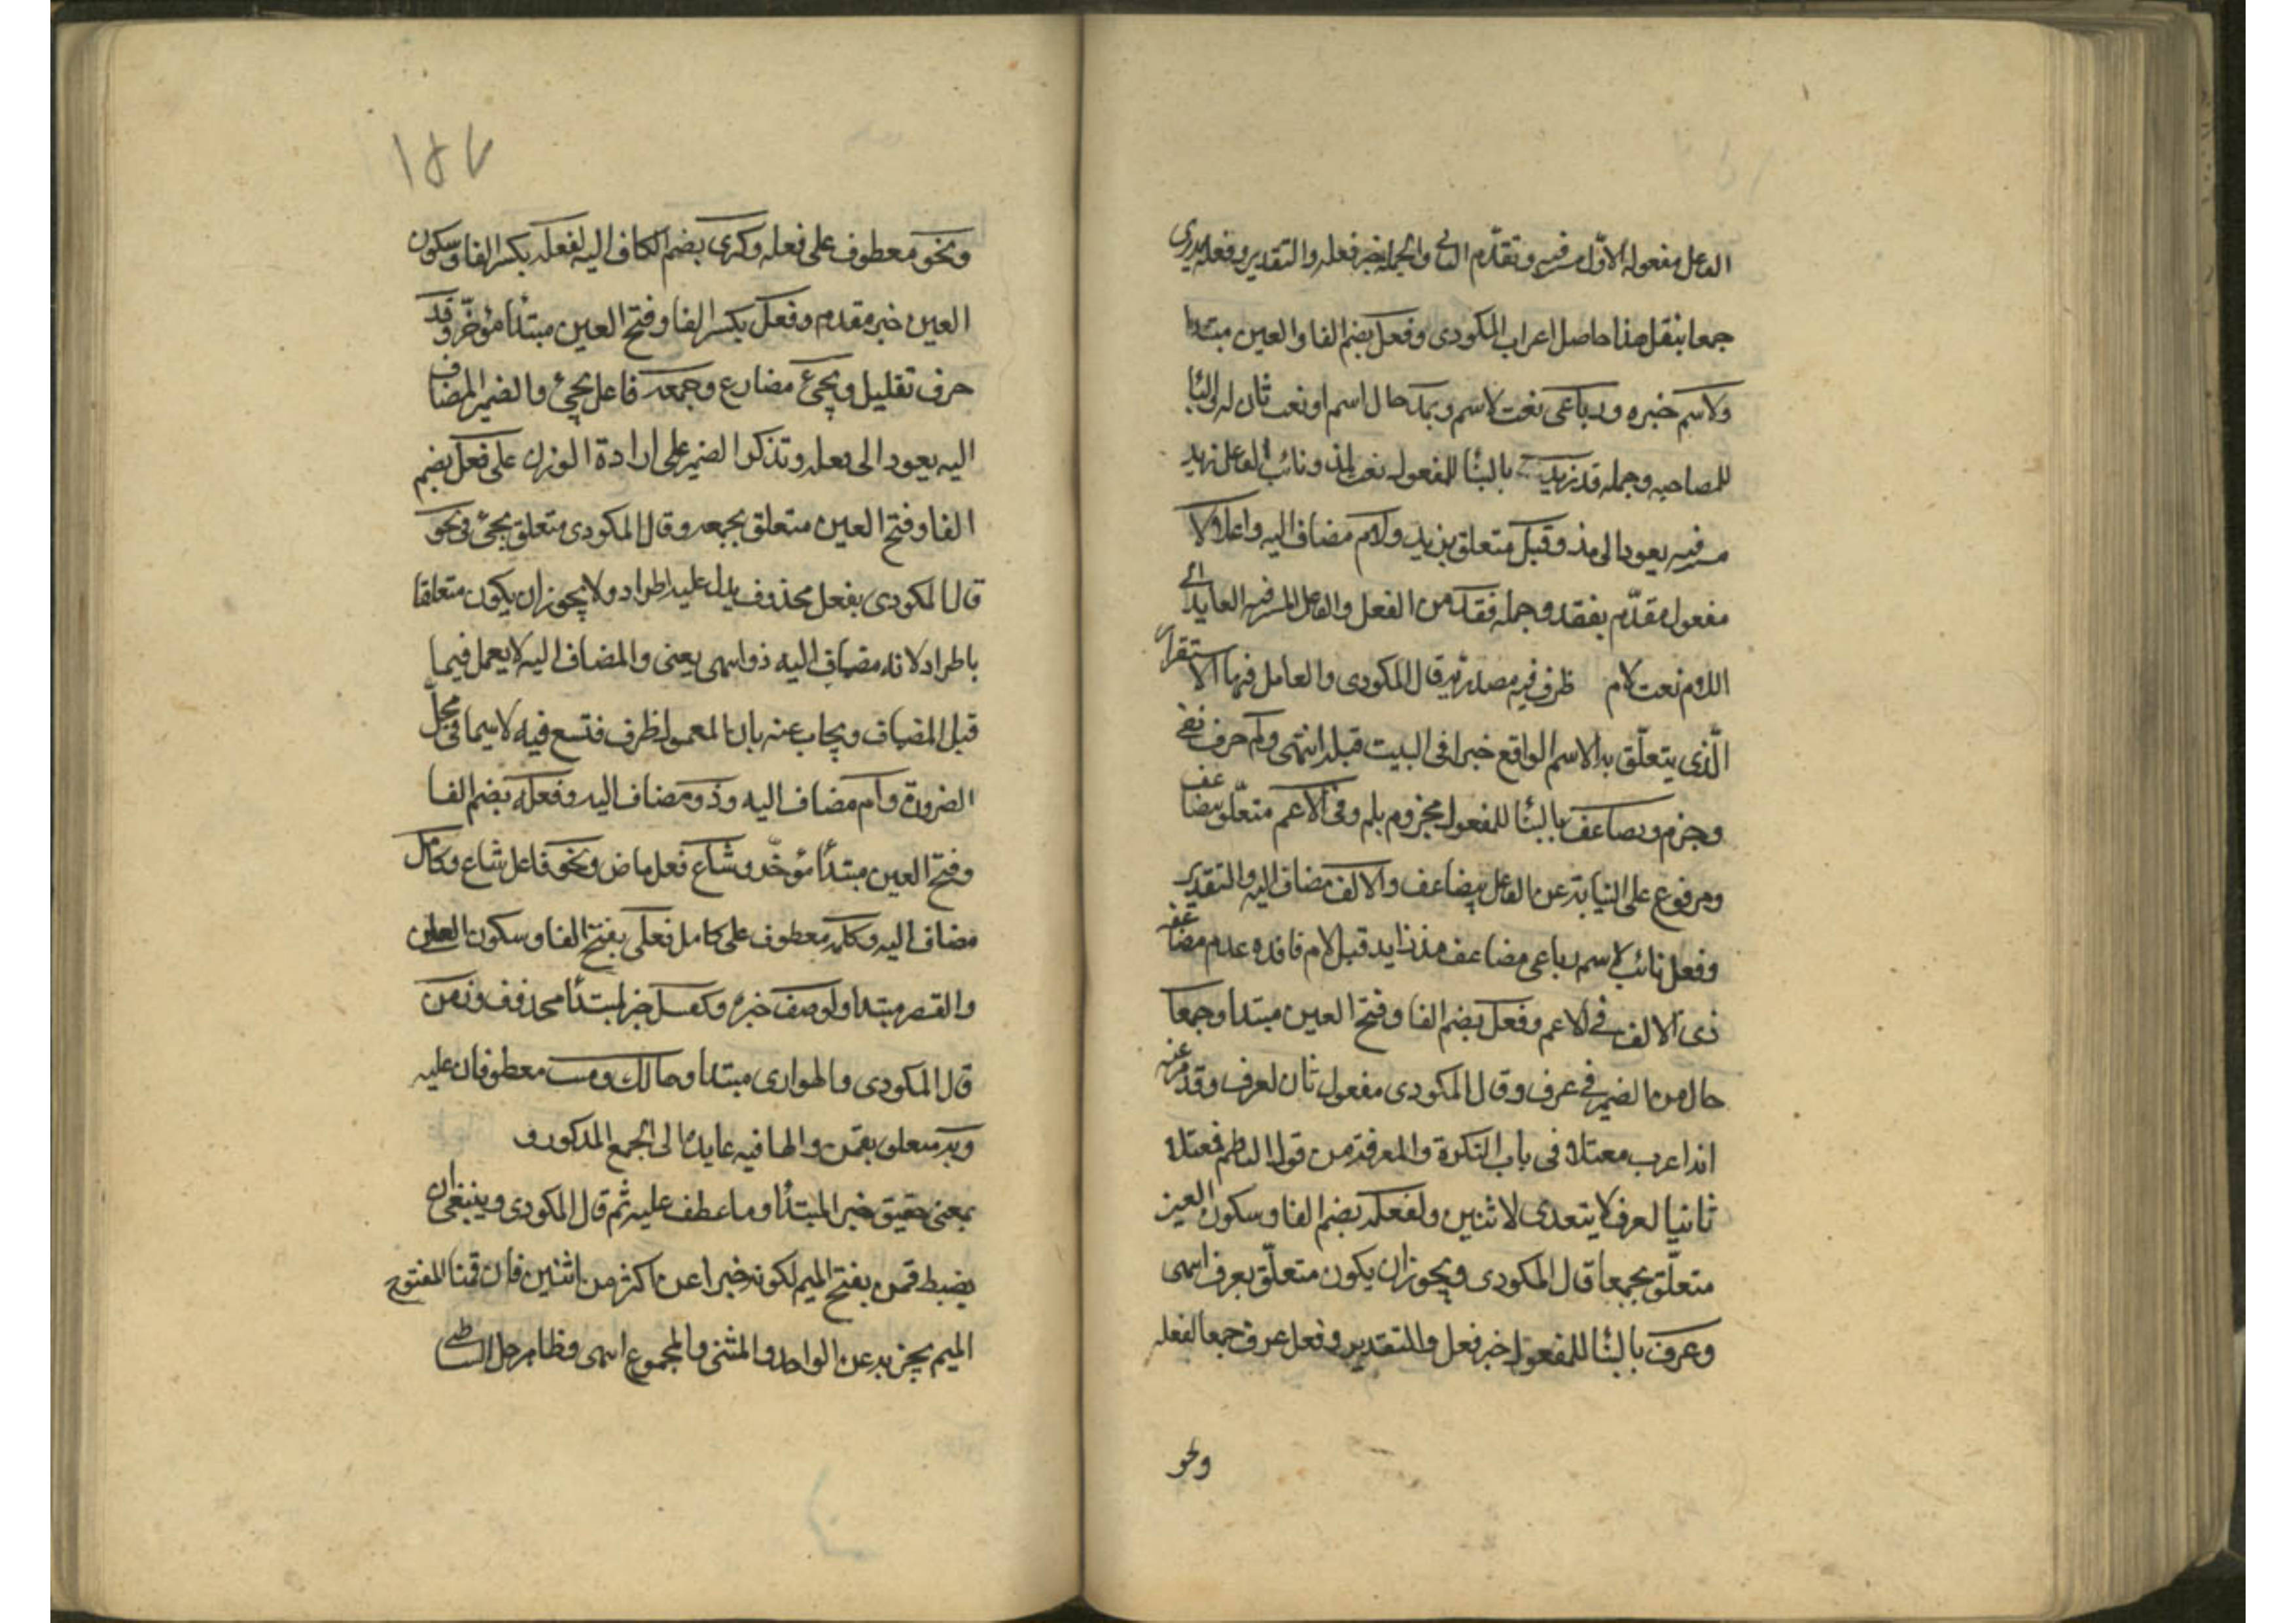 الفاعل مفعوله الاول مستتر فيه وتقدم الثانى والجملة خبر فعلة والتقدير وفعلة يدرى
جمعا بنقل هذا حاصل اعراب المكودى وفعل بضم الفا والعين مبتدا
ولاسم خبره ورباعى نعت لاسم وبمد حال اسم او نعت ثان له البا
للمصاحبه وجمله قد زيد بالبنا للمفعول نعت لمد ونائب الفاعل بزيد
مستتر فيه يعود الى مد وقبل متعلق بزيد ولام مضاف اليه واعلالا
مفعول مقدم بفقد وجملة فقد من الفعل والفاعل المستتر فيه العايد الى
اللام نعت لام ظرفيه مصدرية قال المكودى والعامل فيها الاستقرار
الذى يتعلق به الاسم الواقع خبرا فى البيت قبله انتهى ولم حرف نفى
وجزم ويضاعف بالبنا للمفعول مجزوم بلم وفى الاعم متعلق بيضاعف
ومرفوع على النيابة عن الفاعل بيضاعف والالف مضاف اليه والتقدير
وفعل نائب لاسم رباعى مضاعف مد زايد قبل لام فاقده عدم مضاعف
ذى الالف فى الاعم وفعل بضم الفا وفتح العين مبتدا وجمعا
حال من الضمير فى عرف وقال المكودى مفعول ثان لعرف وقد مر عنه
انه اعرب معتلا فى باب النكرة والمعرفة من قول الناظم فمعتلا
ثانيا لعرف لا يتعدى لاثنين ولفعلة بضم الفا وسكون العين
متعلق بجمعا قال المكودى ويجوز ان يكون متعلق بعرف انتهى
وعرف بالبنا للمفعول خبر فعل والتقدير وفعل عرف جمعا لفعلة
ونحو
١٨٧
ونحو معطوف على فعلة وكبرى بضم الكاف اليه لفعلة بكسر الفا وسكون
العين خبر مقدم وفعل بكسر الفا وفتح العين مبتدأ مؤخر وقد
حرف تقليل ويجئ مضارع وجمعه فاعل يجئ والضمير المضاف
اليه يعود الى فعلة وتذكر الضمير على ارادة الوزن على فعل بضم
الفا وفتح العين متعلق بجمعه وقال المكودى متعلق بيجئ فى نحو
قال المكودى بفعل محذوف يدل عليه اطراد ولا يجوز ان يكون متعلقا
باطراد لانه مضاف اليه ذو انتهى يعنى والمضاف اليه لا يعمل فيما
قبل المضاف ويجاب عنه بان المعمول ظرف فتسع فيه لا سيما فى محل
الضرورة ورام مضاف اليه وذو مضاف اليه وفعلة بضم الفا
وفتح العين مبتدأ مؤخر وشاع فعل ماض ونحو فاعل شاع وكامل
مضاف اليه وكملة معطوف على كامل فعلى بفتح الفا وسكون العين
والقصر مبتدا ولوصف خبره وكقتيل خبر لمبتدأ محذوف وزمن
قال المكودى والهوارى مبتدا وهالك وميت معطوفان عليه
وبه متعلق بقمن والها فيه عايدة الى الجمع المذكور و
بمعنى حقيق خبر المبتدأ وما عطف عليه ثم قال المكودى وينبغى ان
يضبط قمن بفتح الميم لكونه خبرا عن اكثر من اثنين فان قمنا المفتوح
الميم يخبر به عن الواحد والمثنى والمجموع انتهى وظاهر حل الشاطبى